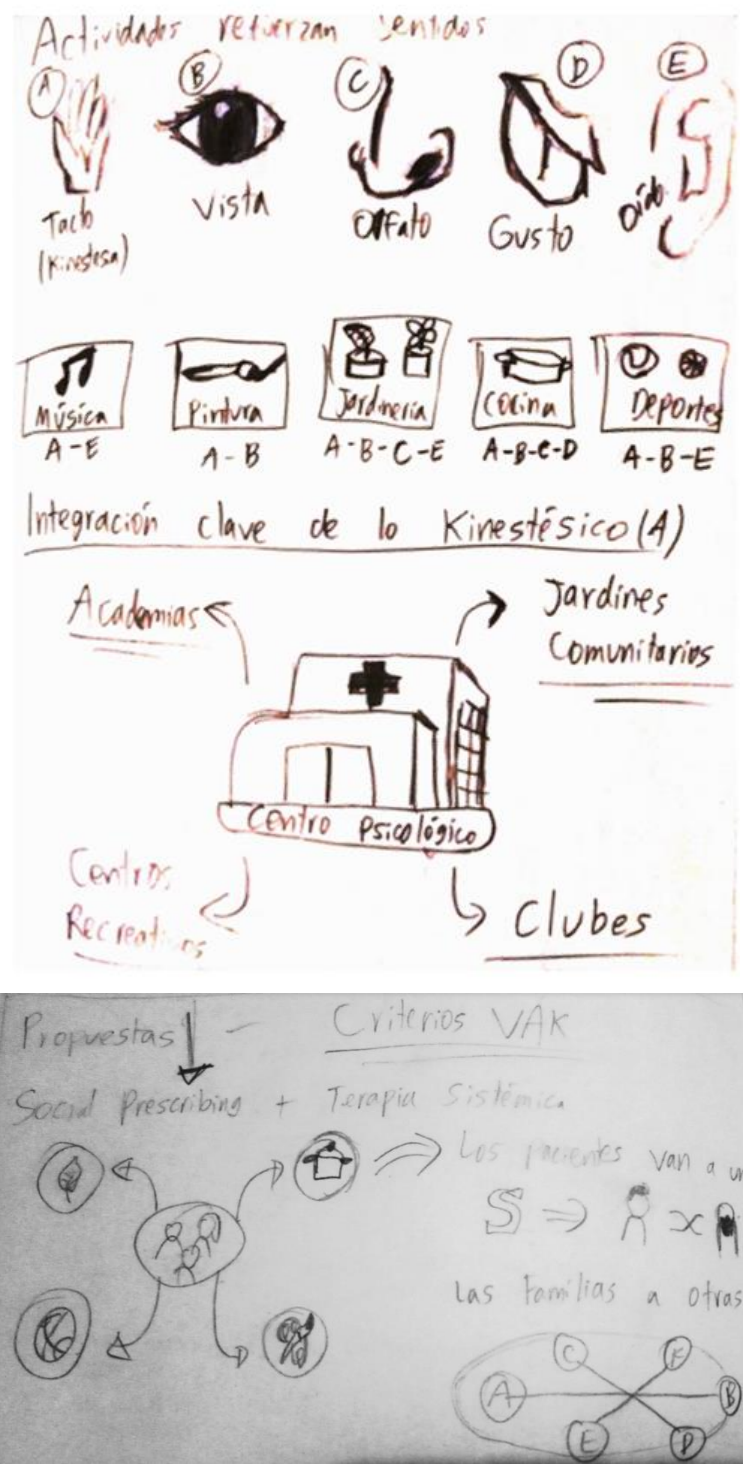 Actividades refuerzan sentidos
A B C D E
Tacto
(Kinestesa)
Vista
Olfato
Gusto
Oído
Música
Pintura
Jardinería
Cocina
Deportes
A-E
A-B
A-B-C-E
A-B-C-D
A-B-E
Integración clave de lo Kinestésico (A)
Academias
Jardines
Comunitarios
Centro Psicológico
Centros
Recreativos
Clubes
Propuestas - Criterios VAK
Social Prescribing + Terapia Sistémica
Los pacientes van a un
S
Las familias a otras
C F
A B
E D